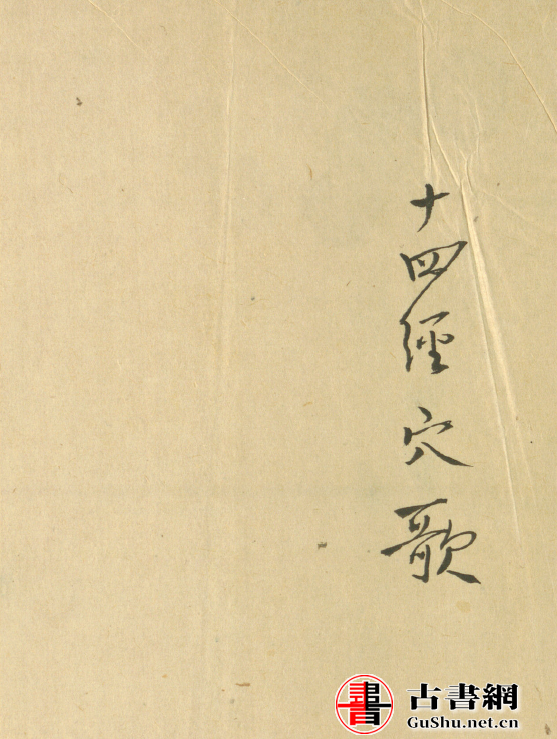 十四經穴歌
書
古書網
GuShu.net.cn